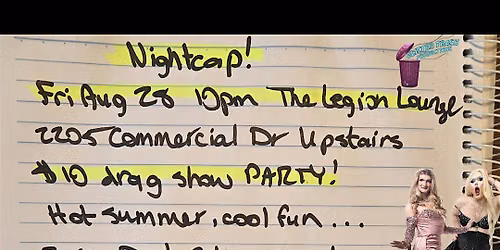 Nightcap!
Fri Aug 28 10pm The Legion Lounge
2205 Commercial Dr Upstairs
$10 drag show PARTY!
Hot summer, cool fun...